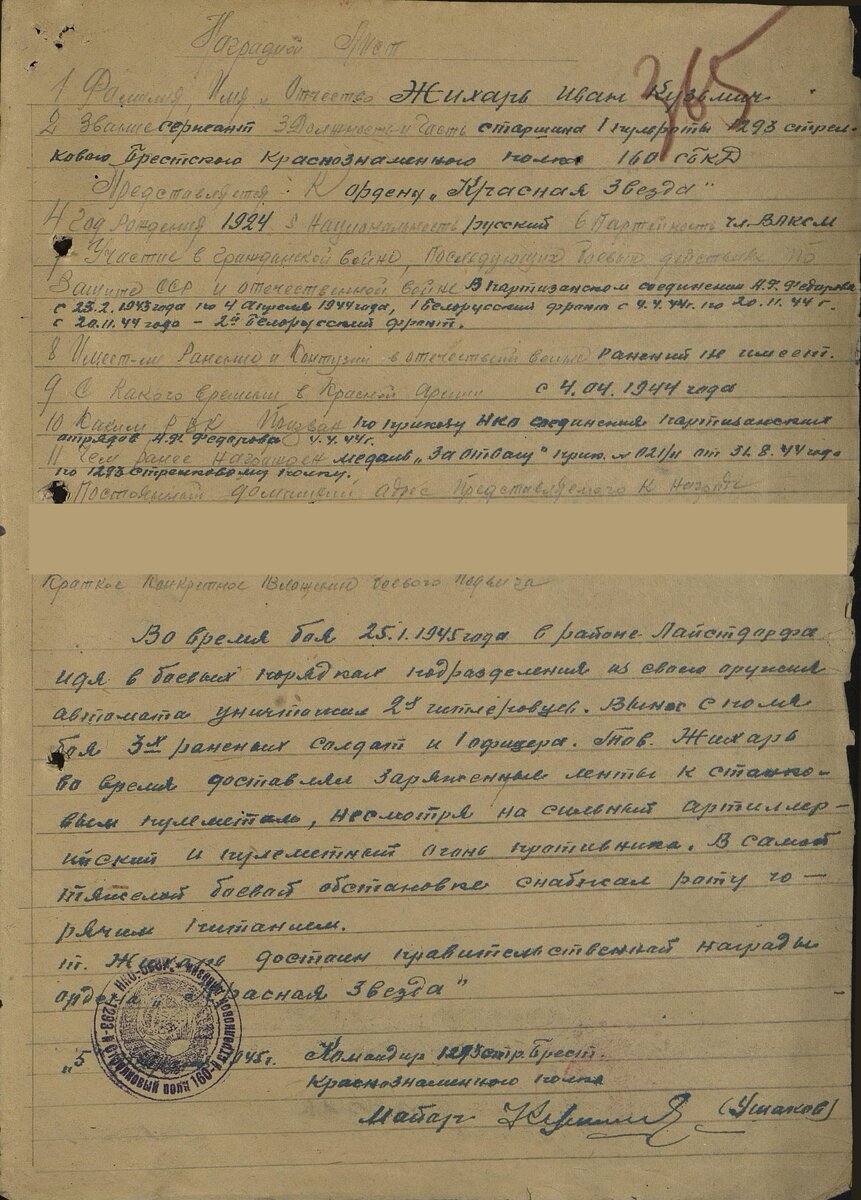 Наградной Лист
365
1 Фамилия, Имя и Отчество Жихарь Иван Кузьмич
2 Звание сержант 3 Должность и Часть старшина 1 пульроты 1293 стрел-
кового Брестского Краснознаменного полка 160 СБКД
Представляется К ордену „Красная Звезда"
4 Год Рождения 1924 5 Национальность русский 6 Партейность чл. ВЛКСМ
7 Участие в гражданской войне, последующих боевых действиях по
Защите ССР и отечественной войне В партизанском соединении А.Ф. Федорова
с 23.2.1943 года по 4 Апреля 1944 года, 1 Белорусский фронт с 4.4.44 г. по 20.11.44 г.
с 20.11.44 года – 2й Белорусский фронт.
8 Имеет-ли Ранения и Контузии в отечественной войне ранений не имеет.
9 С Какого времени в Красной Армии с 4.04.1944 года
10 Каким РВК Призван по приказу НКО соединения партизанских
отрядов А.Ф. Федорова 4.4.44 г.
11 Чем ранее Награжден медаль „За отвагу" прик. № 021/н от 31.8.44 года
по 1293 стрелковому полку.
Постоянный домашний адрес Представляемого К Награде
Краткое Конкретное Изложение боевого Подвига
Во время боя 25.1.1945 года в районе Лайстдорфа
идя в боевых порядках подразделения из своего оружия
автомата уничтожил 2х гитлеровцев. Вынес с поля
боя 3х раненых солдат и 1 офицера. Тов. Жихарь
во время доставлял заряженные ленты к станко-
вым пулеметам, несмотря на сильный артиллер-
ийский и пулеметный огонь противника. В самой
тяжелой боевой обстановке снабжал роту го-
рячим питанием.
т. Жихарь достоин правительственной награды
ордена „Красная Звезда"
„5 1945 г. Командир 1293 стр. Брест.
Краснознаменного полка
Майор (Ушаков)
НКО-СССР
1293-й Стрелковый полк 160-й стрелковой